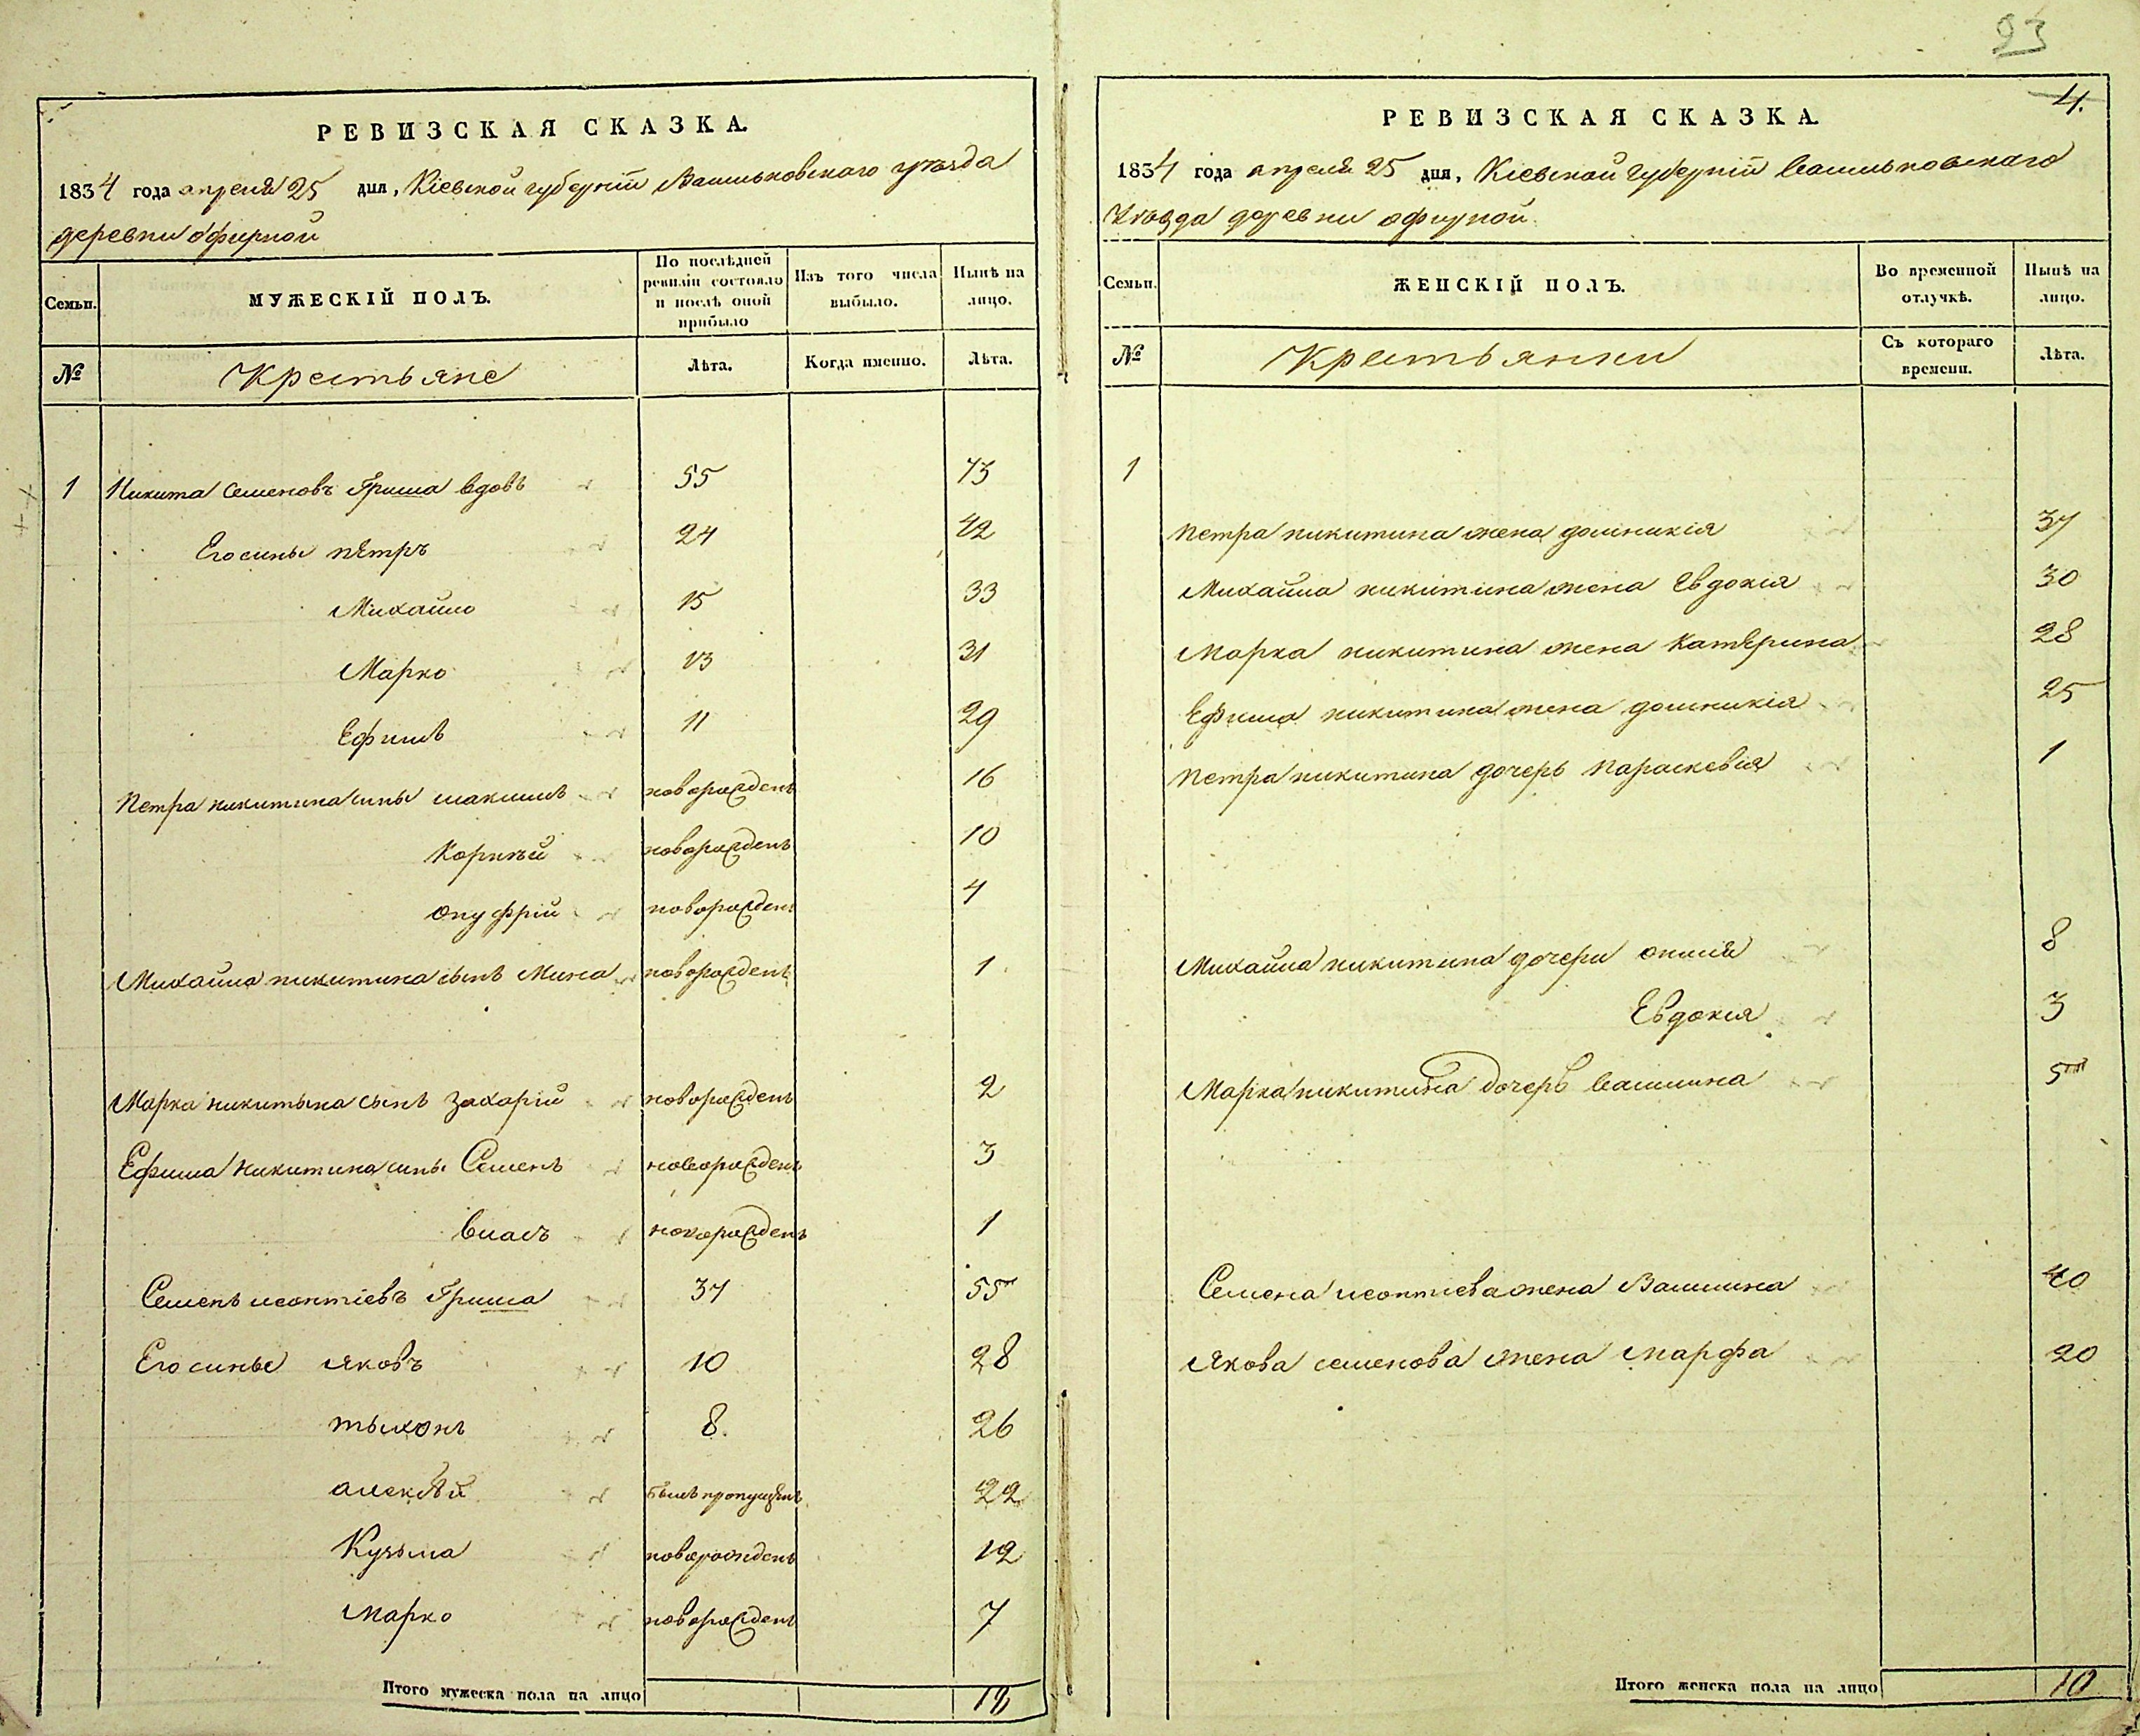 23
РЕВИЗСКАЯ СКАЗКА.
1834 года апреля 25 дня, Кіевской губерніи Васильковскаго уезда
деревни офирной
Семьи.
МУЖЕСКІЙ ПОЛЪ.
По послѣдней ревизіи состояло и послѣ оной прибыло
Изъ того числа выбыло.
Нынѣ на лицо.
№
Крестьяне
Лѣта.
Когда именно.
Лѣта.
1 Никита Семеновъ Гриша вдовъ 55 73
Его сины пЕтръ 24 42
Михайло 15 33
Марко 13 31
Ефимъ 11 29
Петра никитина сины максимъ новорожденъ 16
Корнѣй новорожденъ 10
Онуфрій новорожденъ 4
Михайла никитина сынъ Мина новорожденъ 1
Марка никитына сынъ Захарій новорожденъ 2
Ефима никитина сины Семенъ новорожденъ 3
Власъ новорожденъ 1
Семенъ леонтіевъ Гриша 37 55
Его сины Яковъ 10 28
тыхонъ 8. 26
алексѣй былъ пропущенъ 22
Кузьма новорожденъ 12
Марко новорожденъ 7
Итого мужеска пола на лицо 18
4.
РЕВИЗСКАЯ СКАЗКА.
1834 года апреля 25 дня, Кіевской губерніи Васильковскаго
Уезда деревни офирной
Семьи.
ЖЕНСКІЙ ПОЛЪ.
Во временной отлучкѣ.
Нынѣ на лицо.
№
Крестьянки
Съ котораго времени.
Лѣта.
1
Петра никитина жена домникія 37
Михайла никитина жена Евдокія 30
Марка никитина жена Катерина 28
Ефима никитина жена домникія 25
Петра никитина дочерь Параскевія 1
Михайла никитина дочери 8
Евдокія 3
Марка никитина дочерь Васшина 5
Семена леонтіева жена Васшина 40
Якова семенова жена марфа 20
Итого женска пола на лицо 10